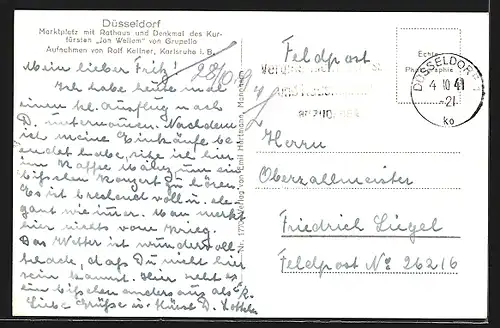 Düsseldorf
Marktplatz mit Rathaus und Denkmal des Kur-
fürsten „Jan Wellem" von Grupello
Aufnahmen von Rolf Kellner, Karlsruhe i. B.
Mein lieber Fritz!
Ich habe heute mal
einen kl. Ausflug nach
D. unternommen. Nachdem
ich meine Einkäufe be-
endet habe, sitze ich hier
im Kaffee um ein
bißchen Konzert zu hören.
Es ist brechend voll u. ele-
gant wie immer. Man merkt
hier nichts vom Krieg.
Das Wetter ist wundervoll
schade, daß Du nicht hier
sein kannst. Hier sieht es
ein bißchen anders aus als
Liebe Grüße u. Küsse D.
Verlag von Emil Hartmann,
Feldpost
Echte
Photographie
DÜSSELDORF
4 10 41
-21
ko
Herrn
Oberzallmeister
Friedrich Liegel
Feldpost No 26216